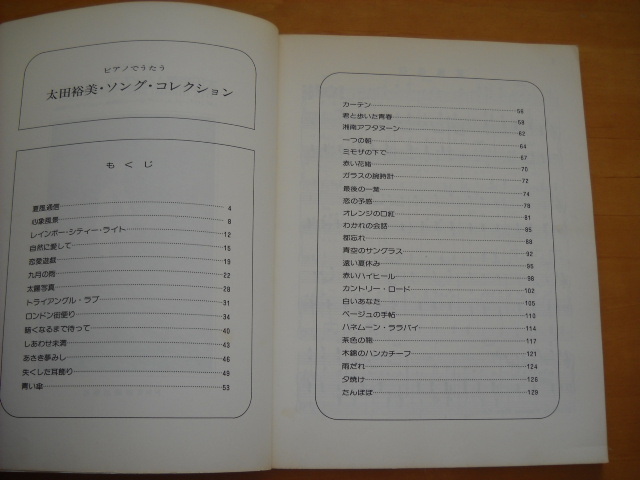 ピアノでうたう
太田裕美・ソング・コレクション
もくじ
夏風通信 4
心象風景 8
レインボー・シティー・ライト 12
自然に愛して 15
恋愛遊戯 19
九月の雨 22
太陽写真 28
トライアングル・ラブ 31
ロンドン街便り 34
暗くなるまで待って 40
しあわせ未満 43
あさき夢みし 46
失くした耳飾り 49
青い傘 53
カーテン 56
君と歩いた青春 59
湘南アフタヌーン 62
一つの朝 64
ミモザの下で 67
赤い花緒 70
ガラスの腕時計 72
最後の一葉 74
恋の予感 78
オレンジの口紅 81
わかれの会話 85
都忘れ 88
青空のサングラス 92
遠い夏休み 95
赤いハイヒール 98
カントリー・ロード 102
白いあなた 105
ベージュの手帖 110
ハネムーン・ララバイ 114
茶色の鞄 117
木綿のハンカチーフ 121
雨だれ 124
夕焼け 126
たんぽぽ 129